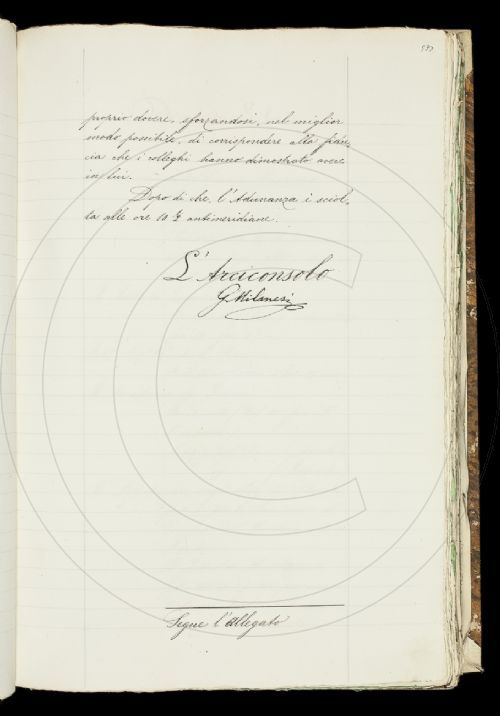 proprio dovere, sforzandosi, nel miglior
modo possibile, di corrispondere alla fidu-
cia che i colleghi hanno dimostrato avere
in lui.
Dopo di che, l'Adunanza è sciol-
ta alle ore 10 ½ antimeridiane.
L'Arciconsolo
G Milanesi
Segue l'allegato